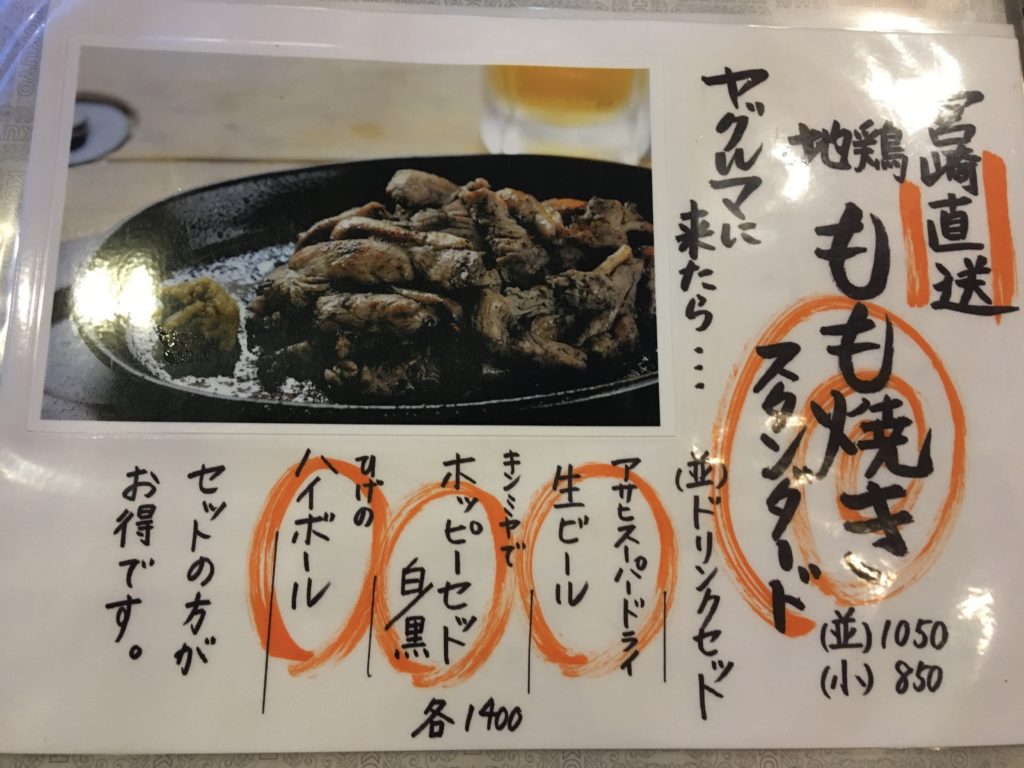 宮崎直送
地鶏
もも焼き
(並)1050
(小) 850
ヤグルマに
来たら…
スタンダード
(並)ドリンクセット
アサヒスーパードライ
生ビール
キンミヤで
ホッピーセット
白/黒
ひげの
ハイボール
各1400
セットの方が
お得です。